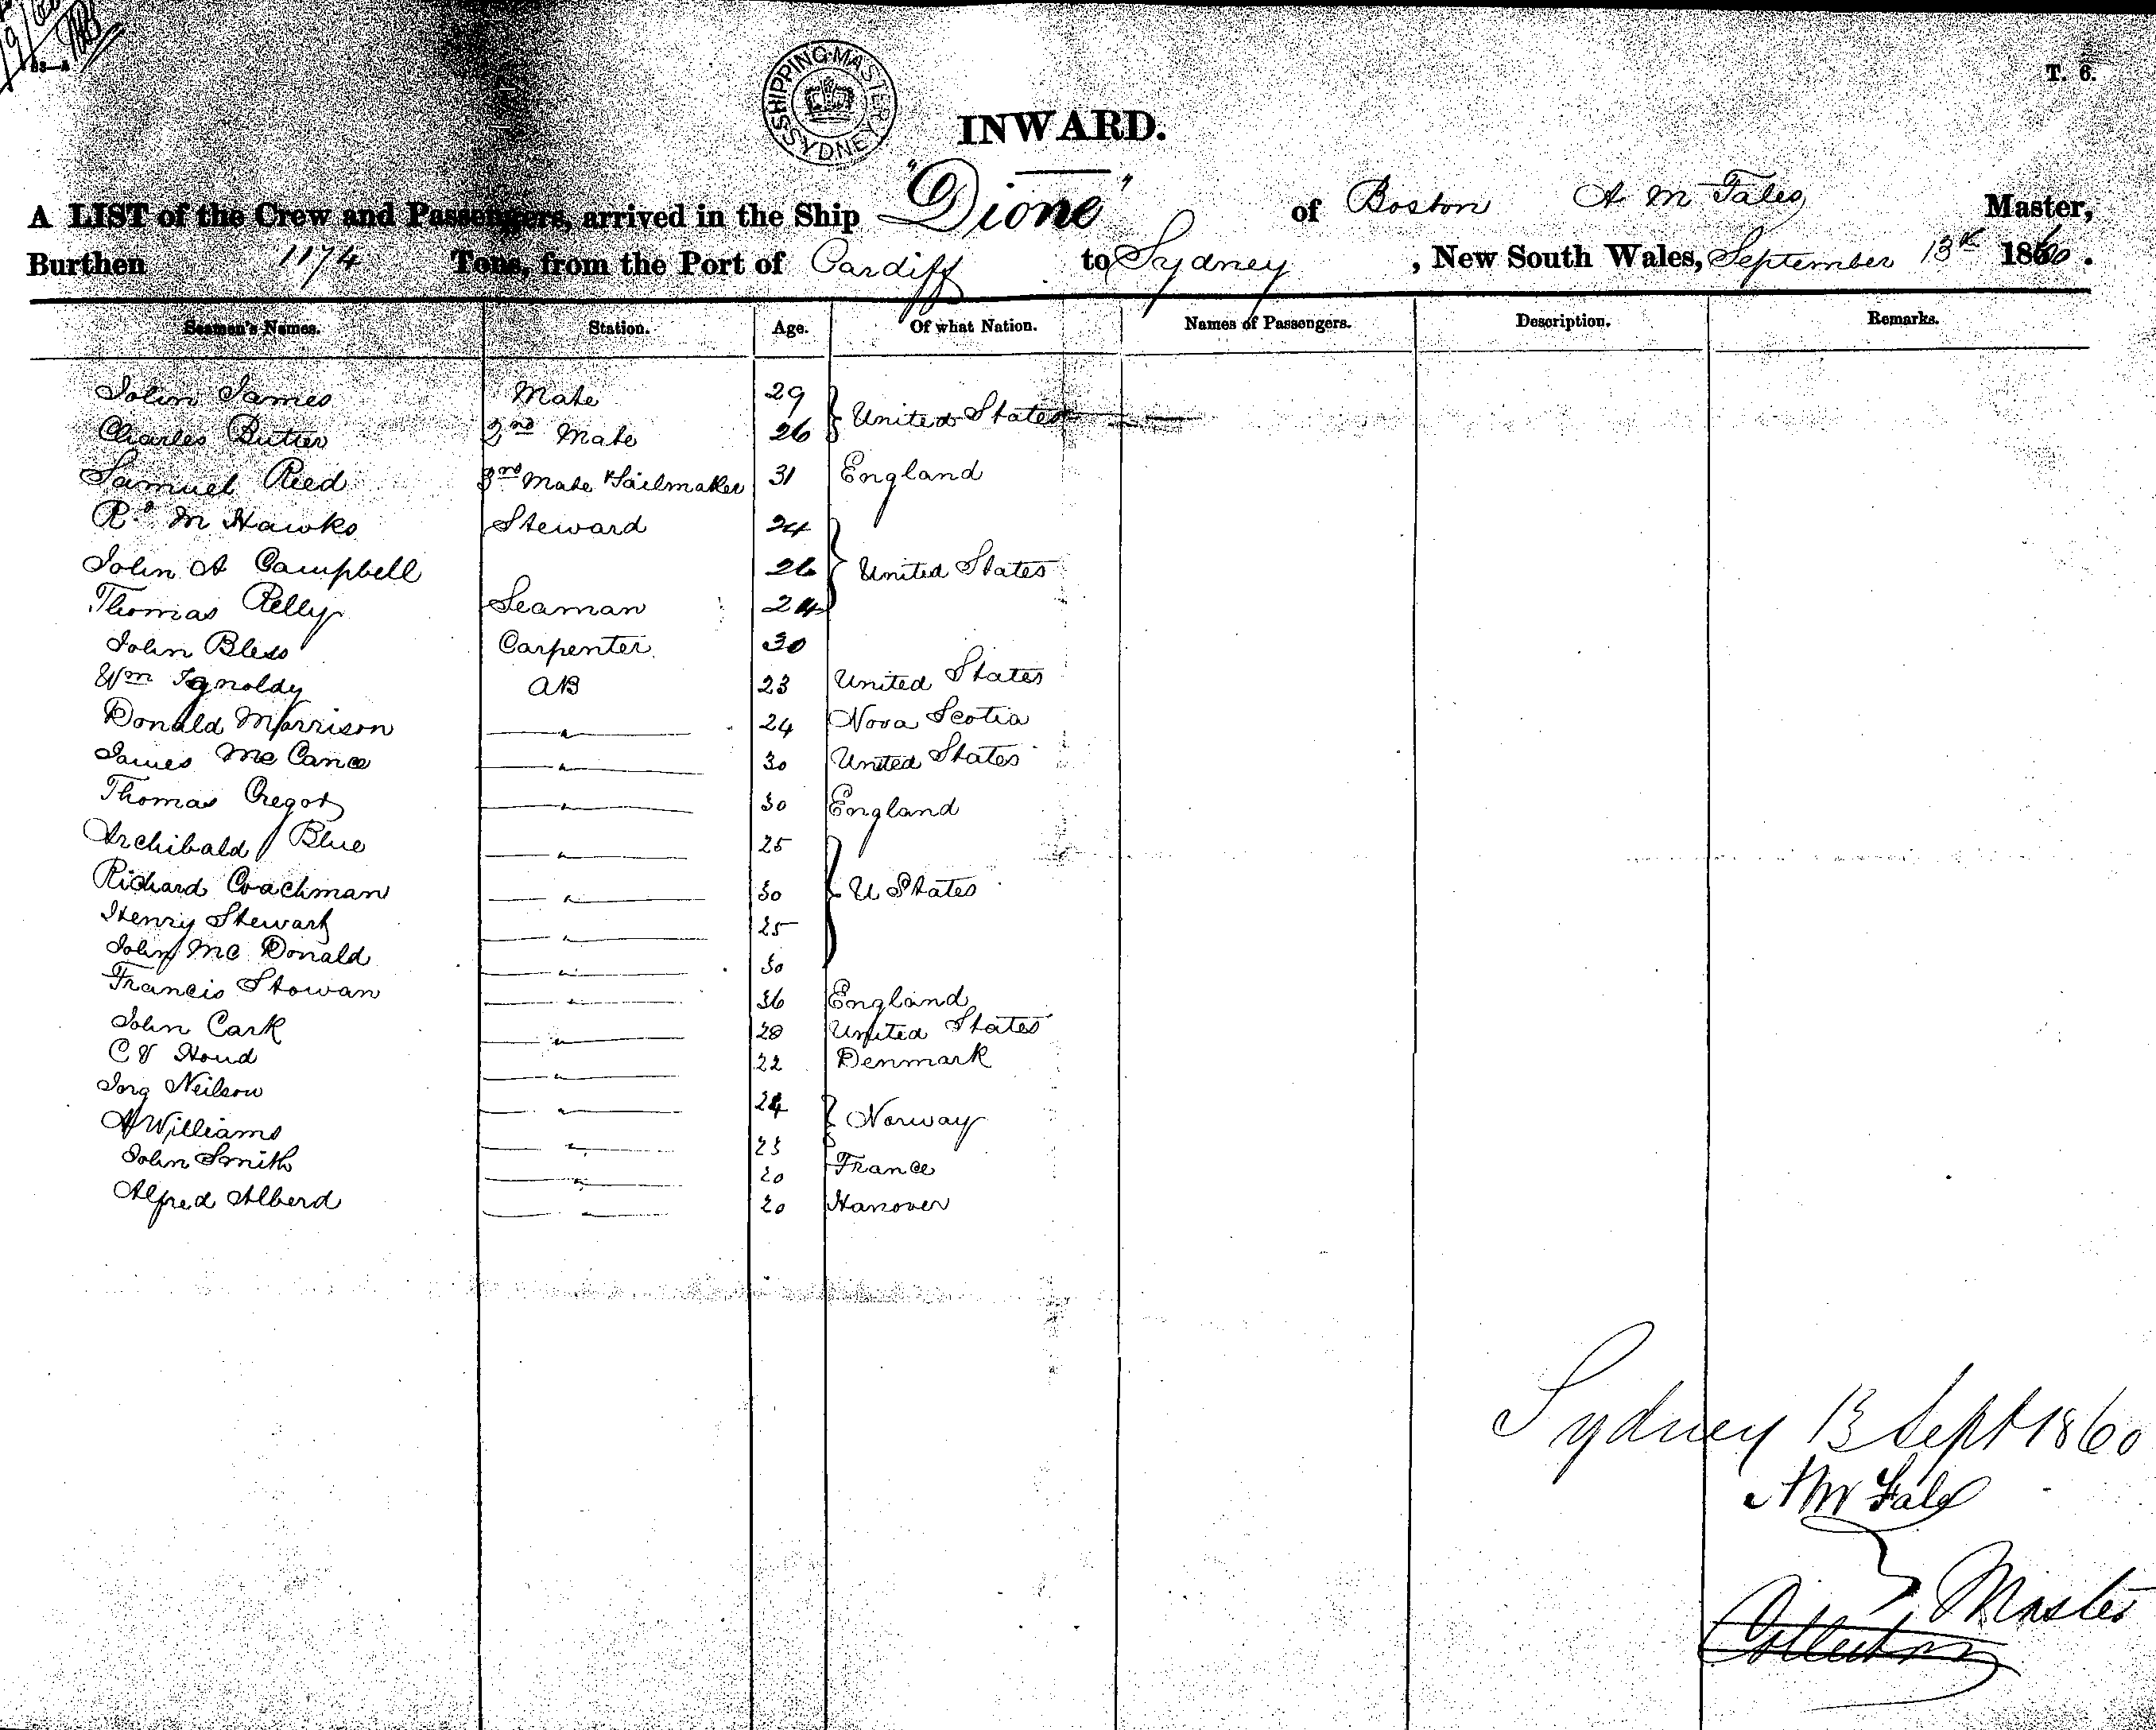 T. 6.
SHIPPING MASTER
SYDNEY
INWARD.
A LIST of the Crew and Passengers, arrived in the Ship "Dione" of Boston A M Fales Master,
Burthen 1174 Tons, from the Port of Cardiff to Sydney, New South Wales, September 13th 1860.
Seamen's Names. Station. Age. Of what Nation. Names of Passengers. Description. Remarks.
John James Mate 29 } United States
Charles Butler 2nd Mate 26
Samuel Reed 3rd Mate & Sailmaker 31 England
Rd M Hawks Steward 24
John A Campbell 26 } United States
Thomas Relly Seaman 24
John Bless Carpenter 30
Wm Ignoldy AB 23 United States
Donald Morrison " 24 Nova Scotia
James Mc Cance " 30 United States
Thomas Cregot " 30 England
Archibald Blue " 25
Richard Coachman " 30 } U States
Henry Stewart " 25
John Mc Donald " 30
Francis Stowan " 36 England
John Cark " 28 United States
C V Houd " 22 Denmark
Jorg Neilson " 24 } Norway
A Williams " 23
John Smith " 20 France
Alfred Alberd " 20 Hanover
Sydney 13 Sept 1860
A M Fales
Master